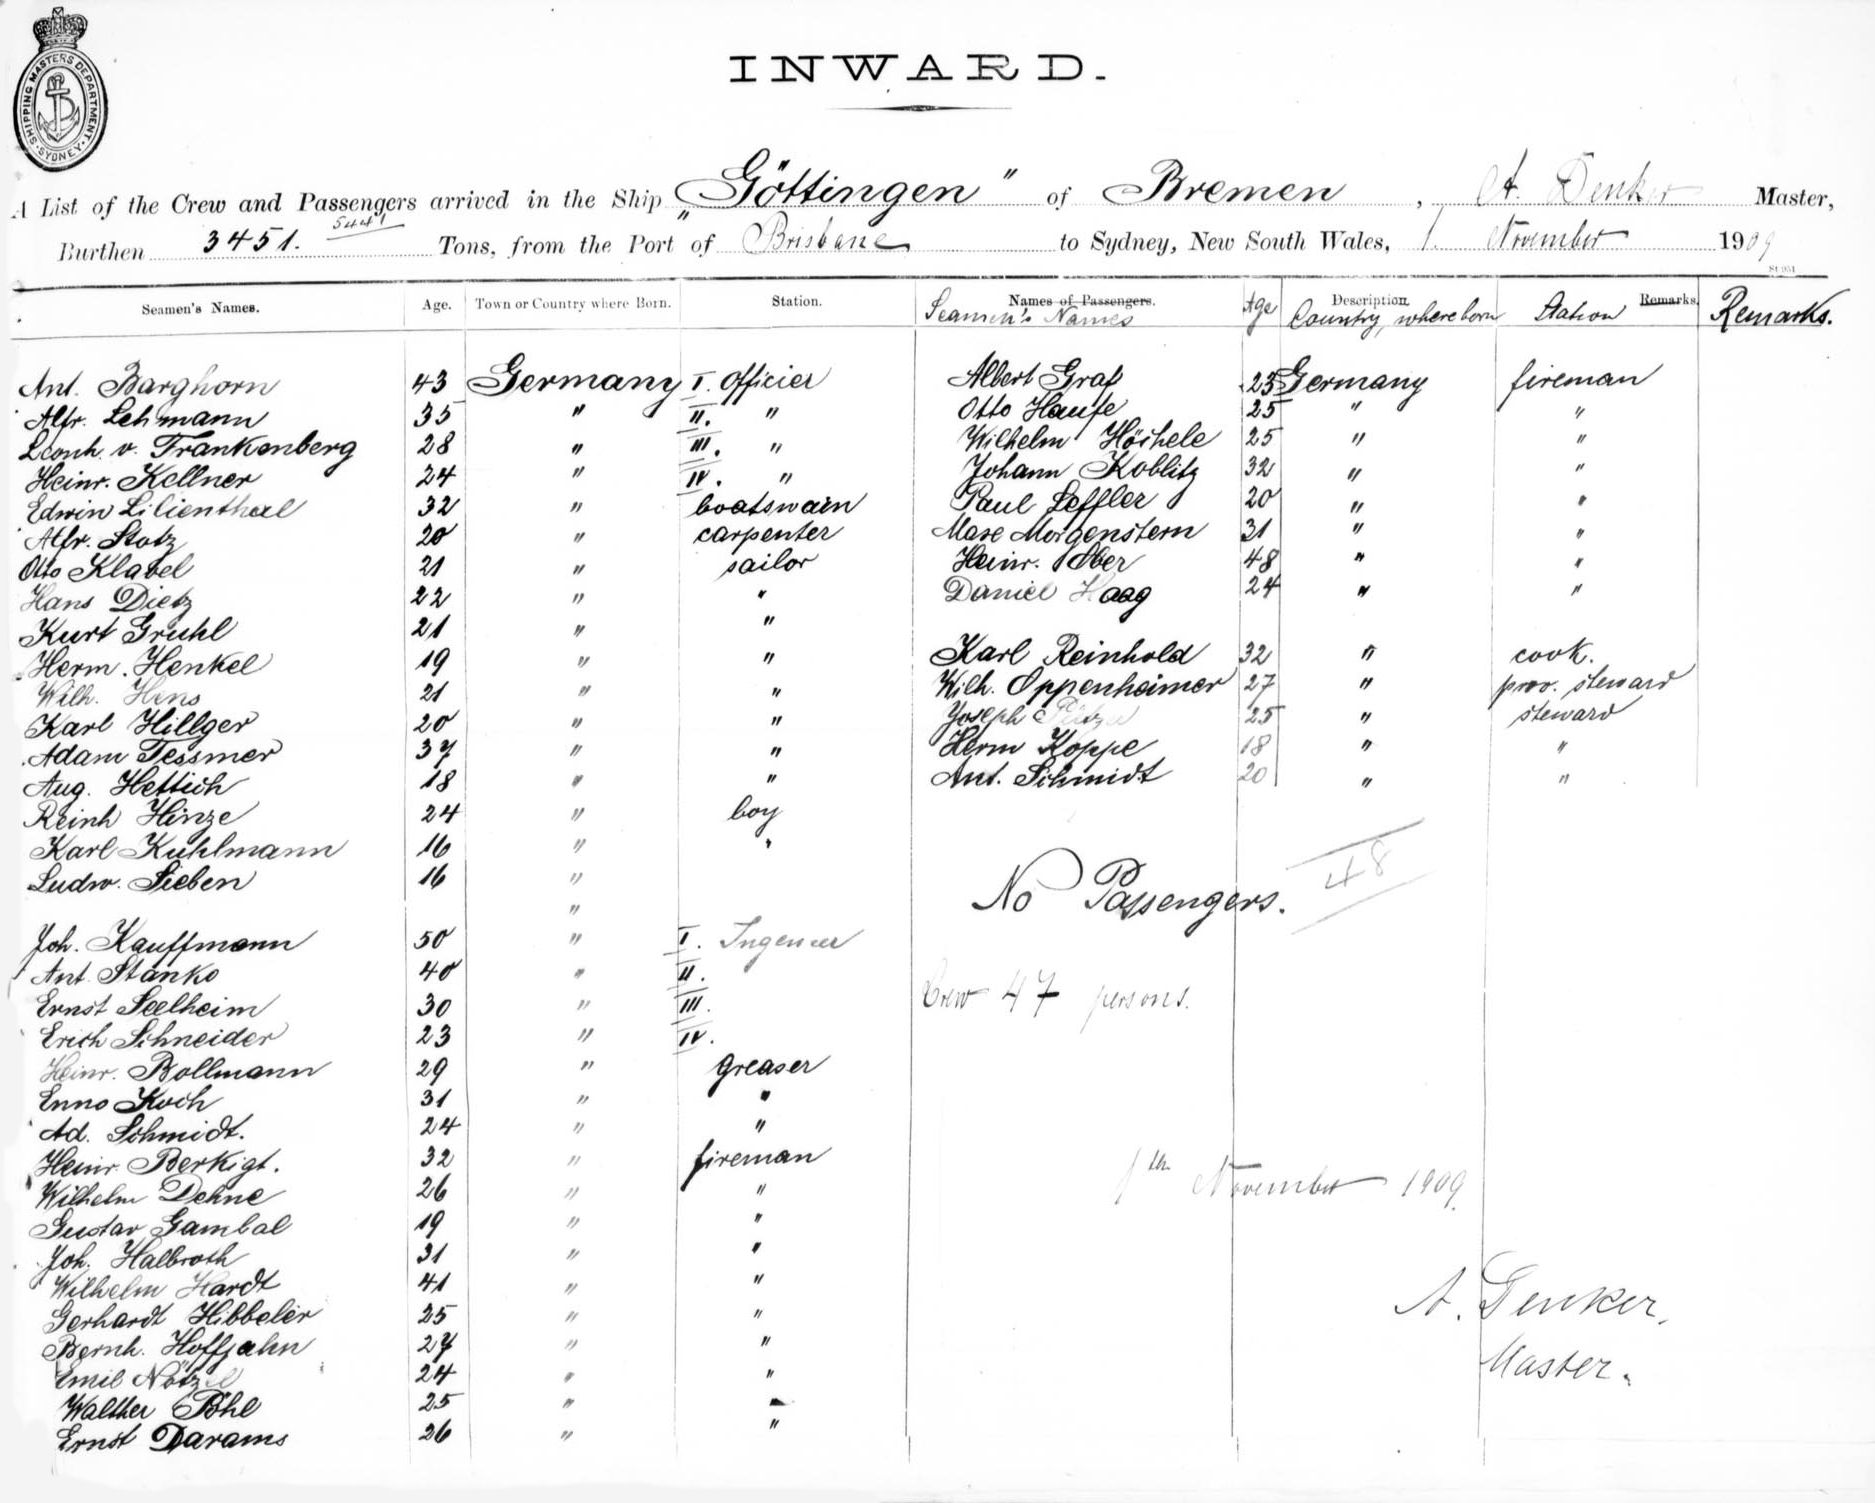 SHIPPING MASTERS DEPARTMENT · SYDNEY ·
INWARD.
A List of the Crew and Passengers arrived in the Ship „Göttingen" of Bremen, A. Denker Master,
5441
Burthen 3451. Tons, from the Port of Brisbane to Sydney, New South Wales, 1. November 1909
St 951
Seamen's Names. Age. Town or Country where Born. Station. Names of Passengers. Description. Remarks.
Seamen's Names Age Country, where born Station Remarks.
Ant. Barghorn 43 Germany I. Officier
Alfr. Lehmann 35 " II. "
Leonh. v. Frankenberg 28 " III. "
Heinr. Kellner 24 " IV. "
Edwin Lilienthal 32 " boatswain
Alfr. Stotz 20 " carpenter
Otto Klabel 21 " sailor
Hans Dietz 22 " "
Kurt Gruhl 21 " "
Herm. Henkel 19 " "
Wilh. Hens 21 " "
Karl Hillger 20 " "
Adam Tessmer 37 " "
Aug. Hettich 18 " "
Reinh Hinze 24 " boy
Karl Kuhlmann 16 " "
Ludw. Sieben 16 "
"
Joh. Kauffmann 50 " I. Ingenieer
Ant. Stanko 40 " II.
Ernst Seelheim 30 " III.
Erich Schneider 23 " IV.
Heinr. Bollmann 29 " greaser
Enno Koch 31 " "
Ad. Schmidt. 24 " "
Heinr. Berkigt. 32 " fireman
Wilhelm Dehne 26 " "
Gustav Gambal 19 " "
Joh. Halbroth 31 " "
Wilhelm Hardt 41 " "
Gerhardt Hibbeler 25 " "
Bernh. Hoffjahn 27 " "
Emil Nötzel 24 " "
Walther Pöhl 25 " "
Ernst Darams 26 " "
Albert Graf 23 Germany fireman
Otto Haufe 25 " "
Wilhelm Höchele 25 " "
Johann Koblitz 32 " "
Paul Leffler 20 " "
Max Morgenstern 31 " "
Heinr. Ober 48 " "
Daniel Haag 24 " "
Karl Reinhold 32 " cook.
Wilh. Oppenheimer 27 " prov. steward
Joseph 25 " steward
Herm Koppe 18 " "
Ant. Schmidt 20 " "
No Passengers.
48
Crew 47 persons.
1th November 1909.
A. Denker,
Master.